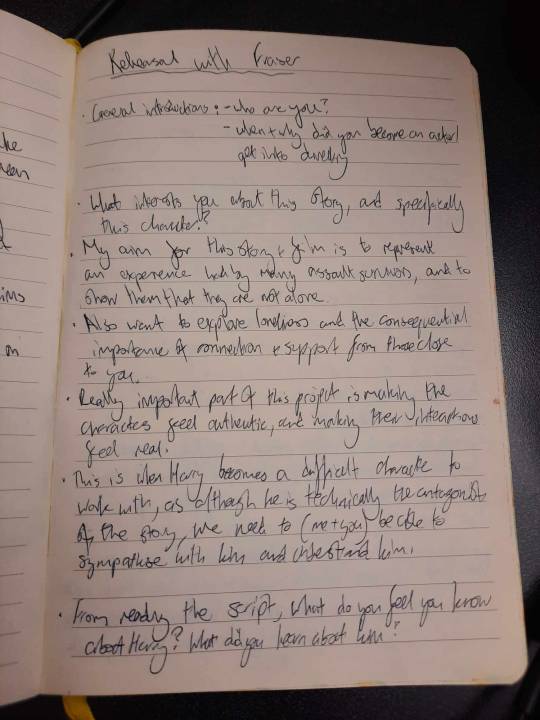 Rehersal with Fraiser
· General introductions: - who are you?
- when + why did you become an actor/
get into directing
· What interests you about this story, and specifically
this character?
· My aim for this story + film is to represent
an experience had by many assault survivors, and to
show them that they are not alone.
· Also want to explore loneliness and the consequential
importance of connection + support from those close
to you.
· Really important part of this project is making the
characters feel authentic, and making their interactions
feel real.
· This is when Harry becomes a difficult character to
work with, as although he is technically the antagonist
of the story, we need to (me + you) be able to
sympathise with him and understand him.
· From reading the script, what do you feel you know
about Harry? What did you learn about him?
ke
een
d
ims
on